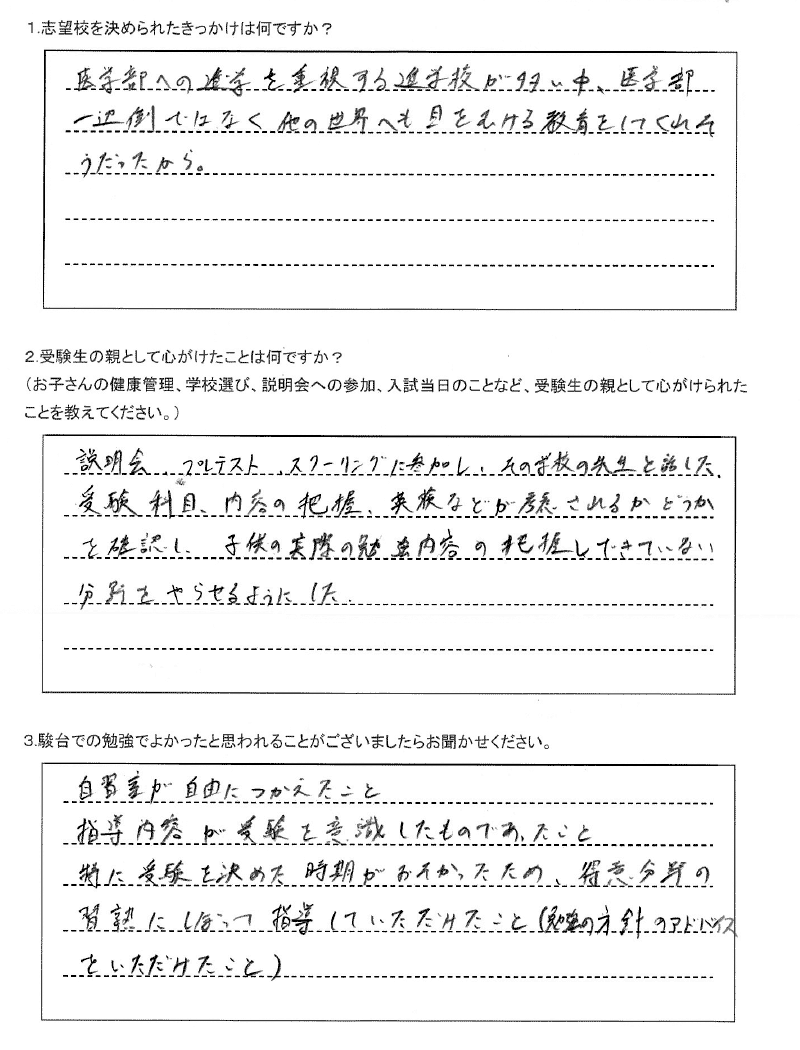 1.志望校を決められたきっかけは何ですか？
医学部への進学を重視する進学校が多い中、医学部
一辺倒ではなく他の世界へも目をむける教育をしてくれそ
うだったから。
2.受験生の親として心がけたことは何ですか？
（お子さんの健康管理、学校選び、説明会への参加、入試当日のことなど、受験生の親として心がけられた
ことを教えてください。）
説明会、プレテスト、スクーリングに参加し、その学校の先生と話した。
受験科目、内容の把握、英検などが考慮されるかどうか
を確認し、子供の実際の勉強内容の把握しできていない
分野をやらせるようにした.
3.駿台での勉強でよかったと思われることがございましたらお聞かせください。
自習室が自由につかえたこと
指導内容が受験を意識したものであったこと
特に受験を決めた時期がおそかったため、得意分野の
習熟にしぼって指導していただけたこと(勉強の方針のアドバイス
をいただけたこと)